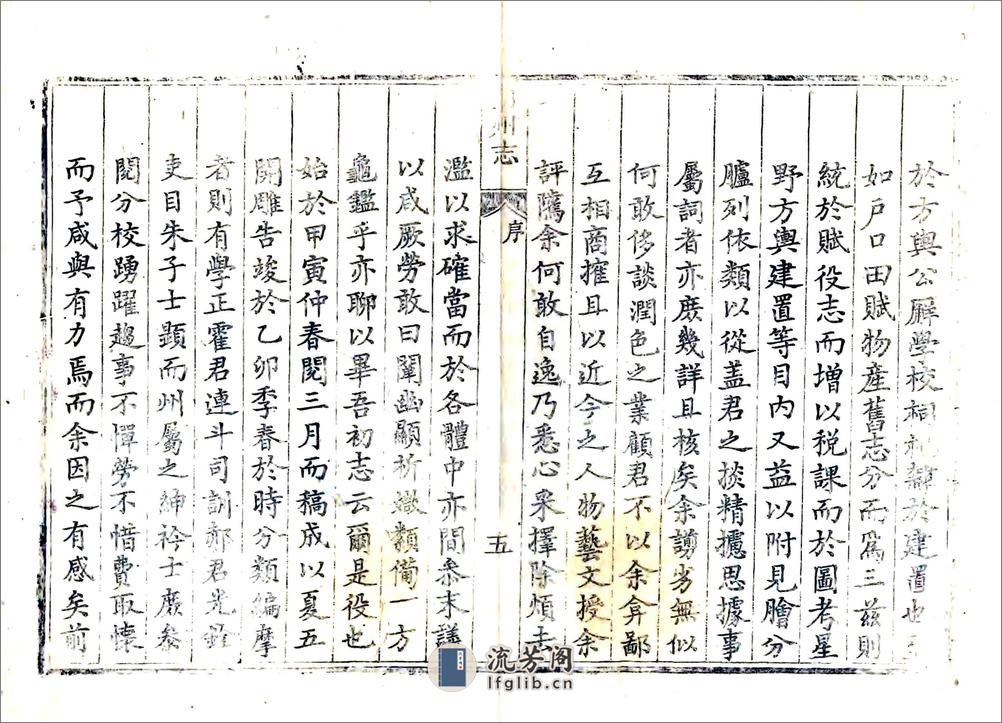 於方輿公廨學校祠祀隸於建置也至
如戸口田賦物產舊志分而爲三兹則
統於賦役志而增以税課而於圖考星
野方輿建置等目内又益以附見膾分
臚列依類以從盖君之掞精攄思據事
屬詞者亦庶幾詳且核矣余謭劣無似
何敢侈談潤色之業顧君不以余弇鄙
互相商搉且以近今之人物藝文授余
評隲余何敢自逸乃悉心采擇除煩去
州志
序
五
濫以求確當而於各體中亦間叅末議
以咸厥勞敢曰闡幽顯析媺纇備一方
龜鑑乎亦聊以畢吾初志云爾是役也
始於甲寅仲春閱三月而稿成以夏五
開雕告竣於乙卯季春於時分類編摩
者則有學正霍君連斗司訓郝君光
吏目朱子士顯而州屬之紳衿士庶叅
閱分校踴躍趨事不憚勞不惜費取懐
而予咸與有力焉而余因之有感矣前
流芳阁
lfglib.cn